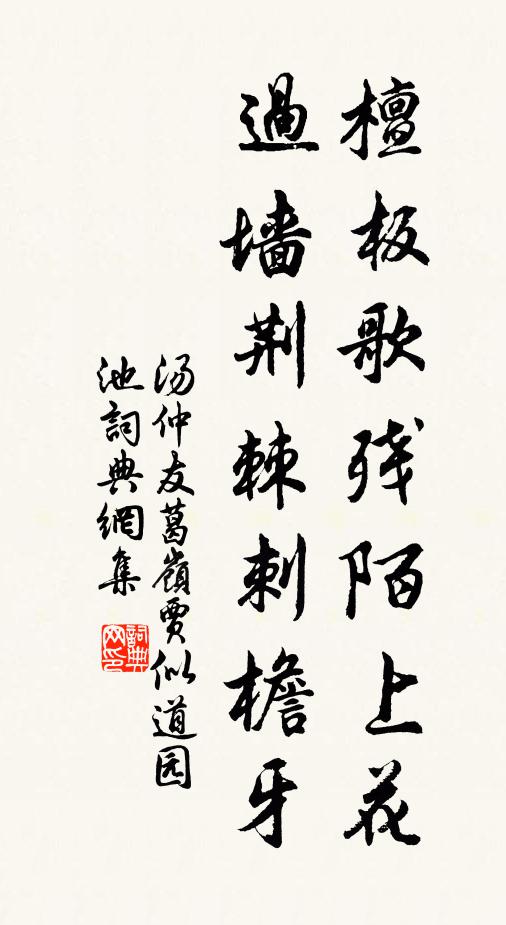 檀板歌残陌上花
過墙荆棘刺檐牙
汤仲友葛嶺賈似道园
池詞典網集
詞典网印